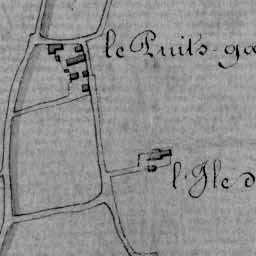 le Puits-ga
l'Ile d